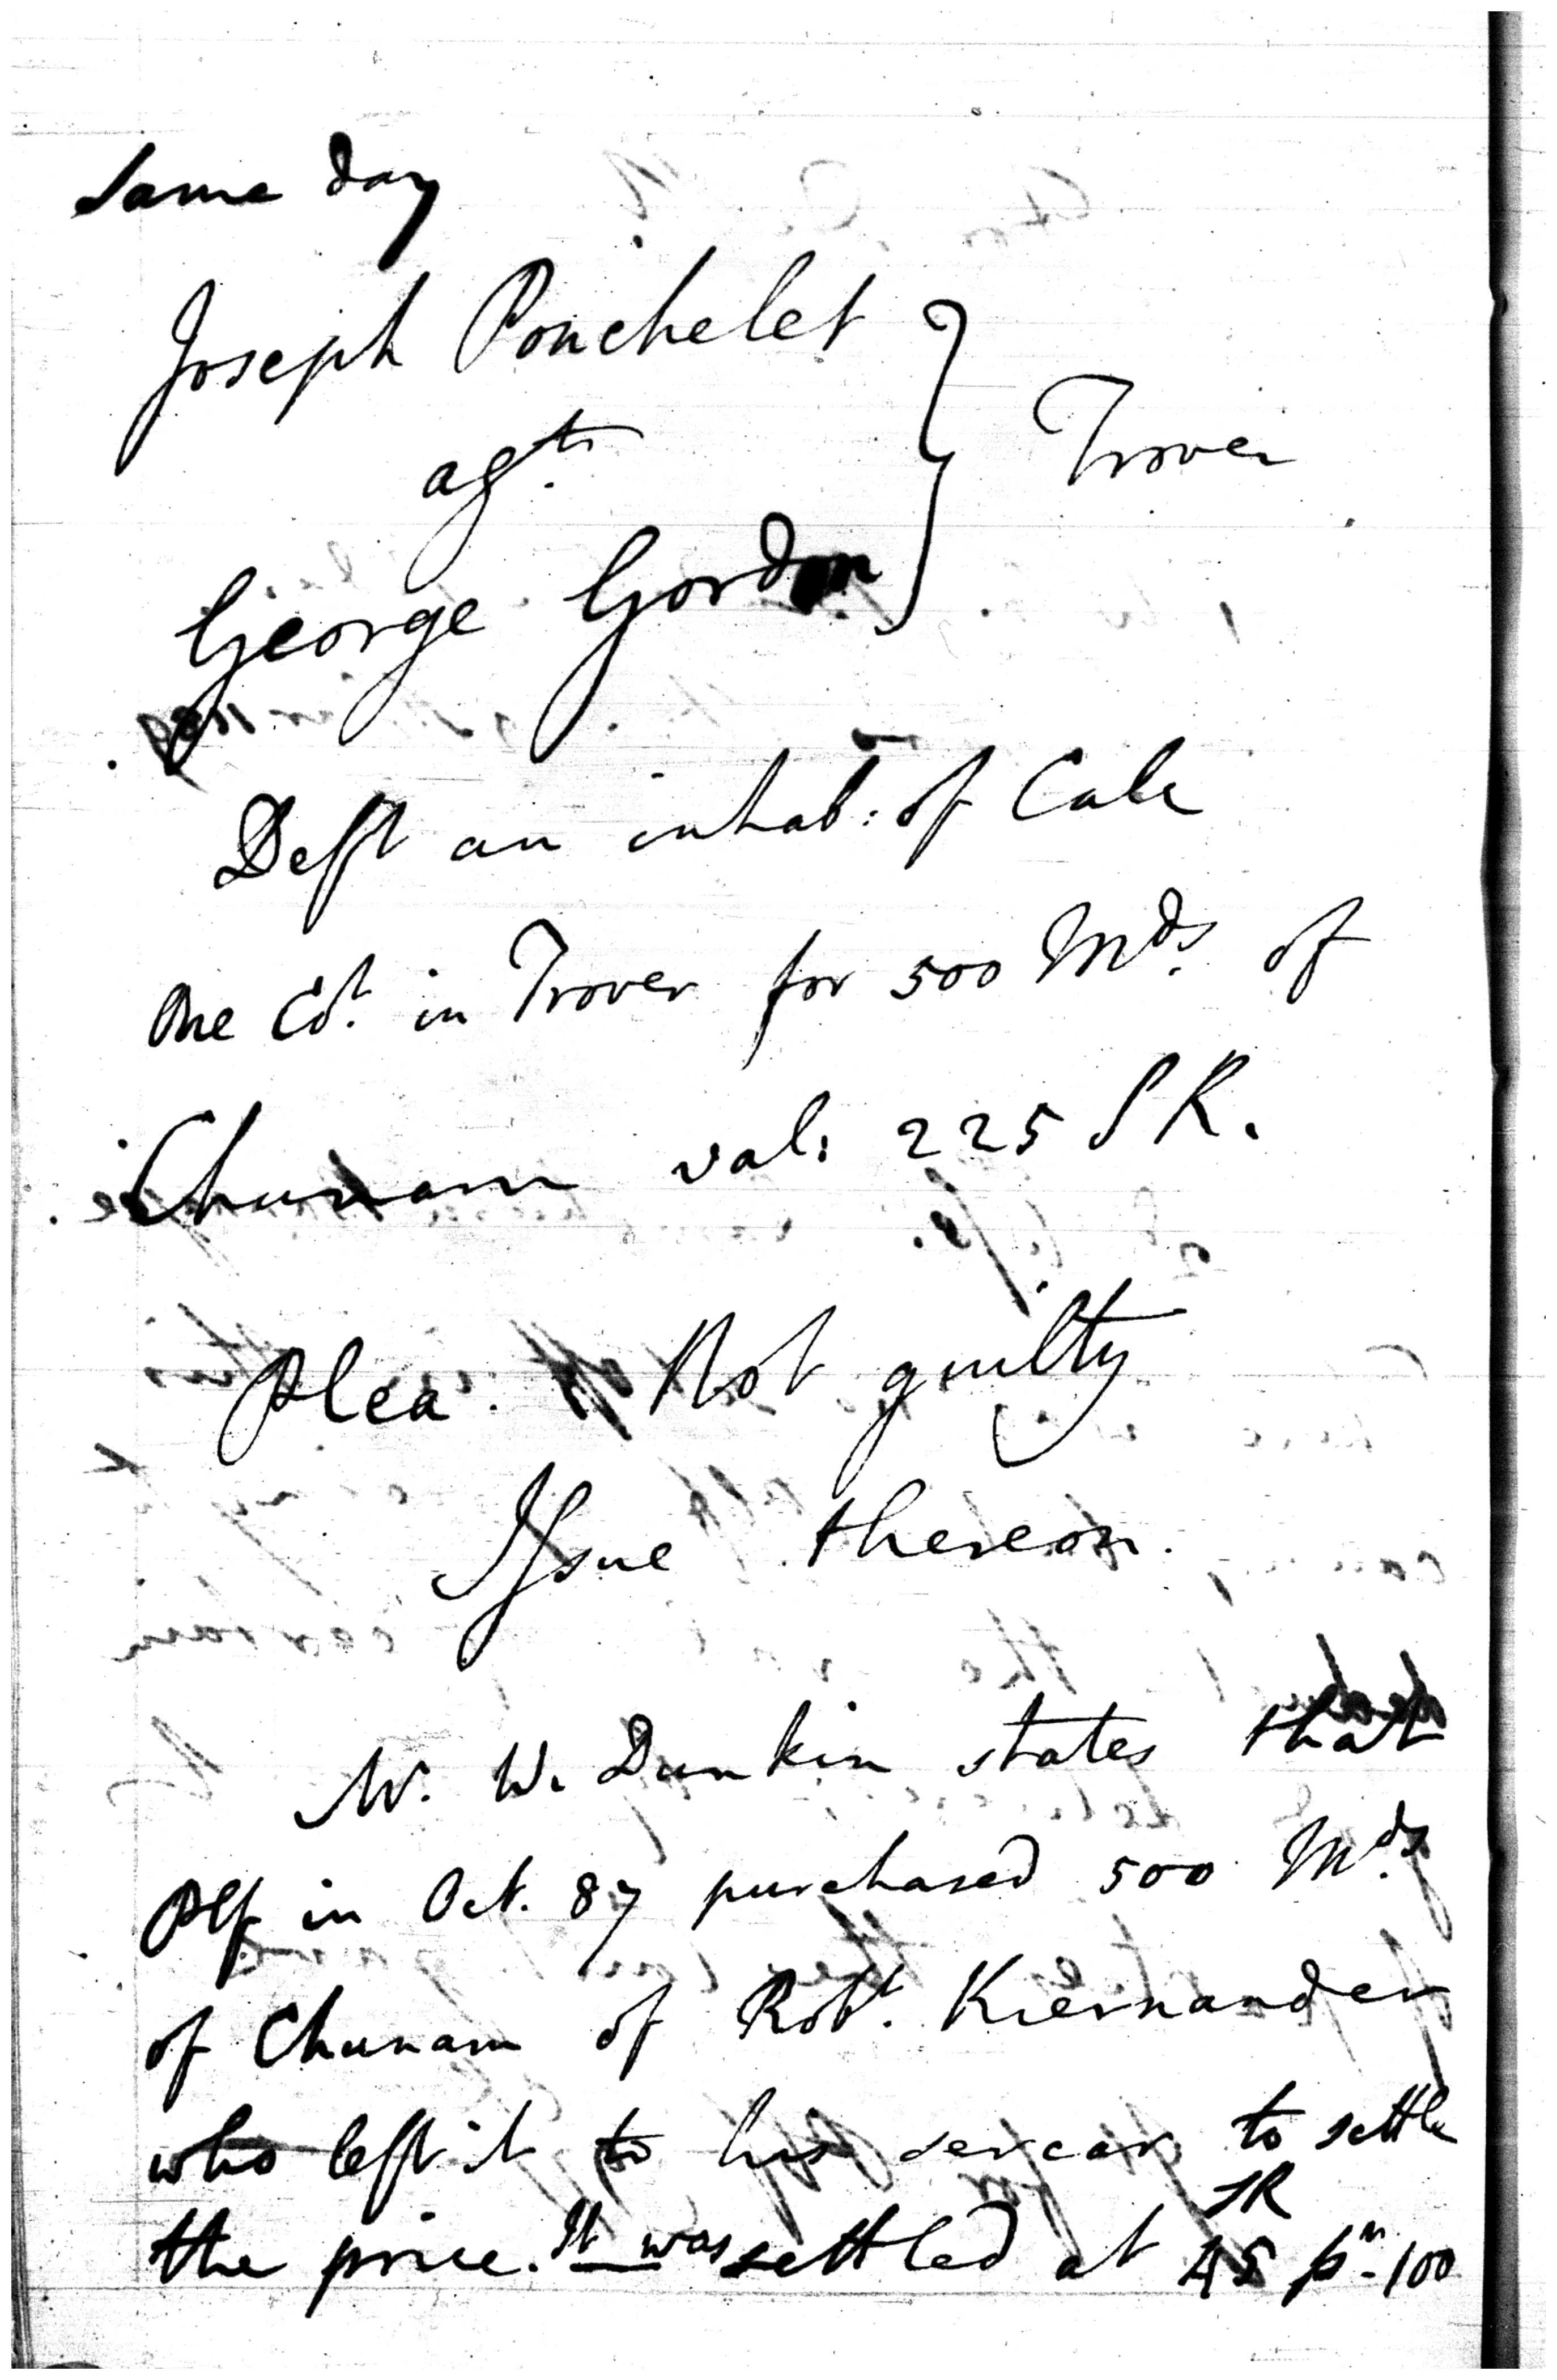 Same day
Joseph Pouchelet
agt.
Trover
George Gordon
Deft an inhab: of Calc
One Ct. in Trover for 500 Mds. of
Chunam val: 225 S R.
Plea. Not guilty
Issue thereon.
Mr. W. Dunkin states that
Plf in Oct. 87 purchased 500 Mds.
of Chunam of Robt. Kiernander
who left it to his sercar to settle
SR
the price. It was settled at 45 pr. 100